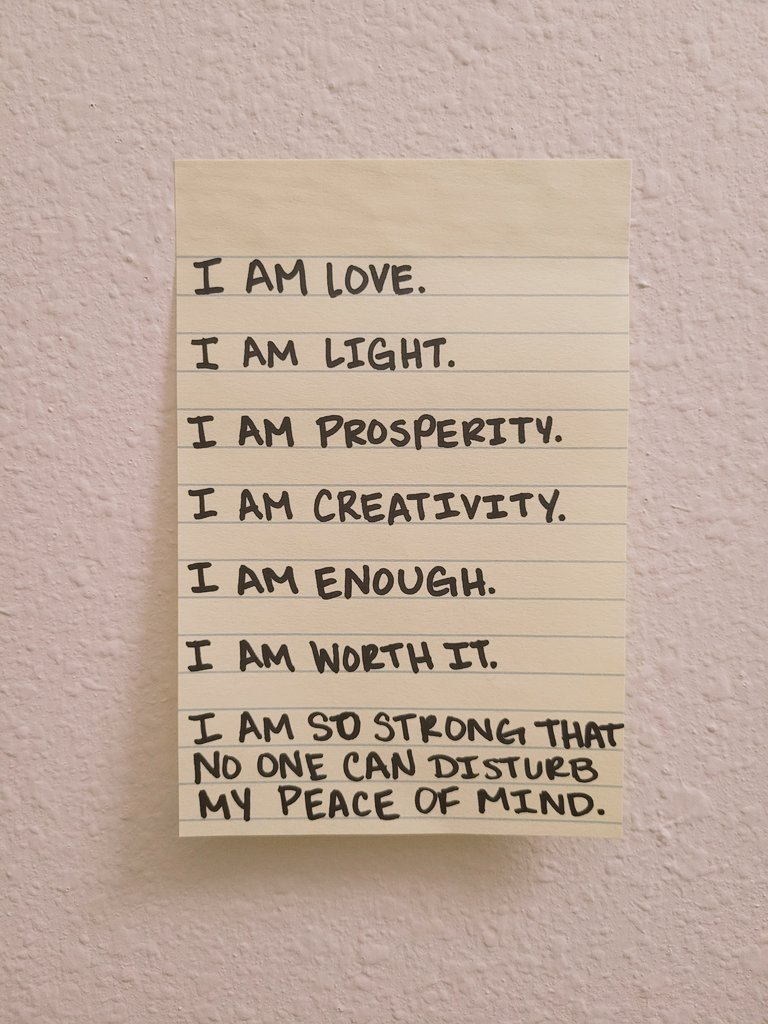 I AM LOVE.
I AM LIGHT.
I AM PROSPERITY.
I AM CREATIVITY.
I AM ENOUGH.
I AM WORTH IT.
I AM SO STRONG THAT
NO ONE CAN DISTURB
MY PEACE OF MIND.